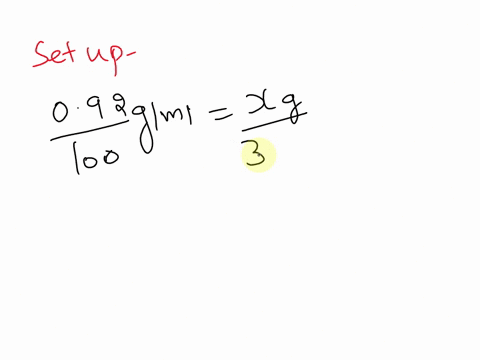 Set up-
0.92/100 g/ml = x g/3